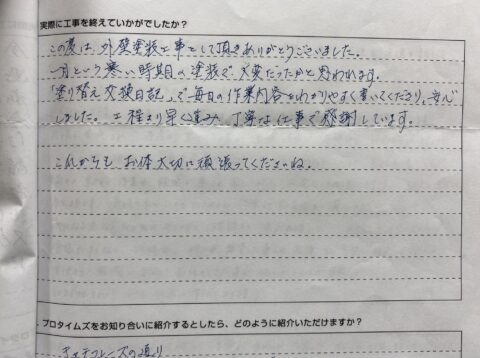 実際に工事を終えていかがでしたか?
この度は、外壁塗装工事をして頂きありがとうございました。
一月という寒い時期の塗装で大変だったかと思われます。
「塗り替え交換日記」で毎日の作業内容をわかりやすく書いてくださり、安心
しました。工程より早く進み、丁寧な仕事で感謝しています。
これからも お体大切に頑張ってくださいね。
プロタイムズをお知り合いに紹介するとしたら、どのように紹介いただけますか?
キャッチフレーズの通り